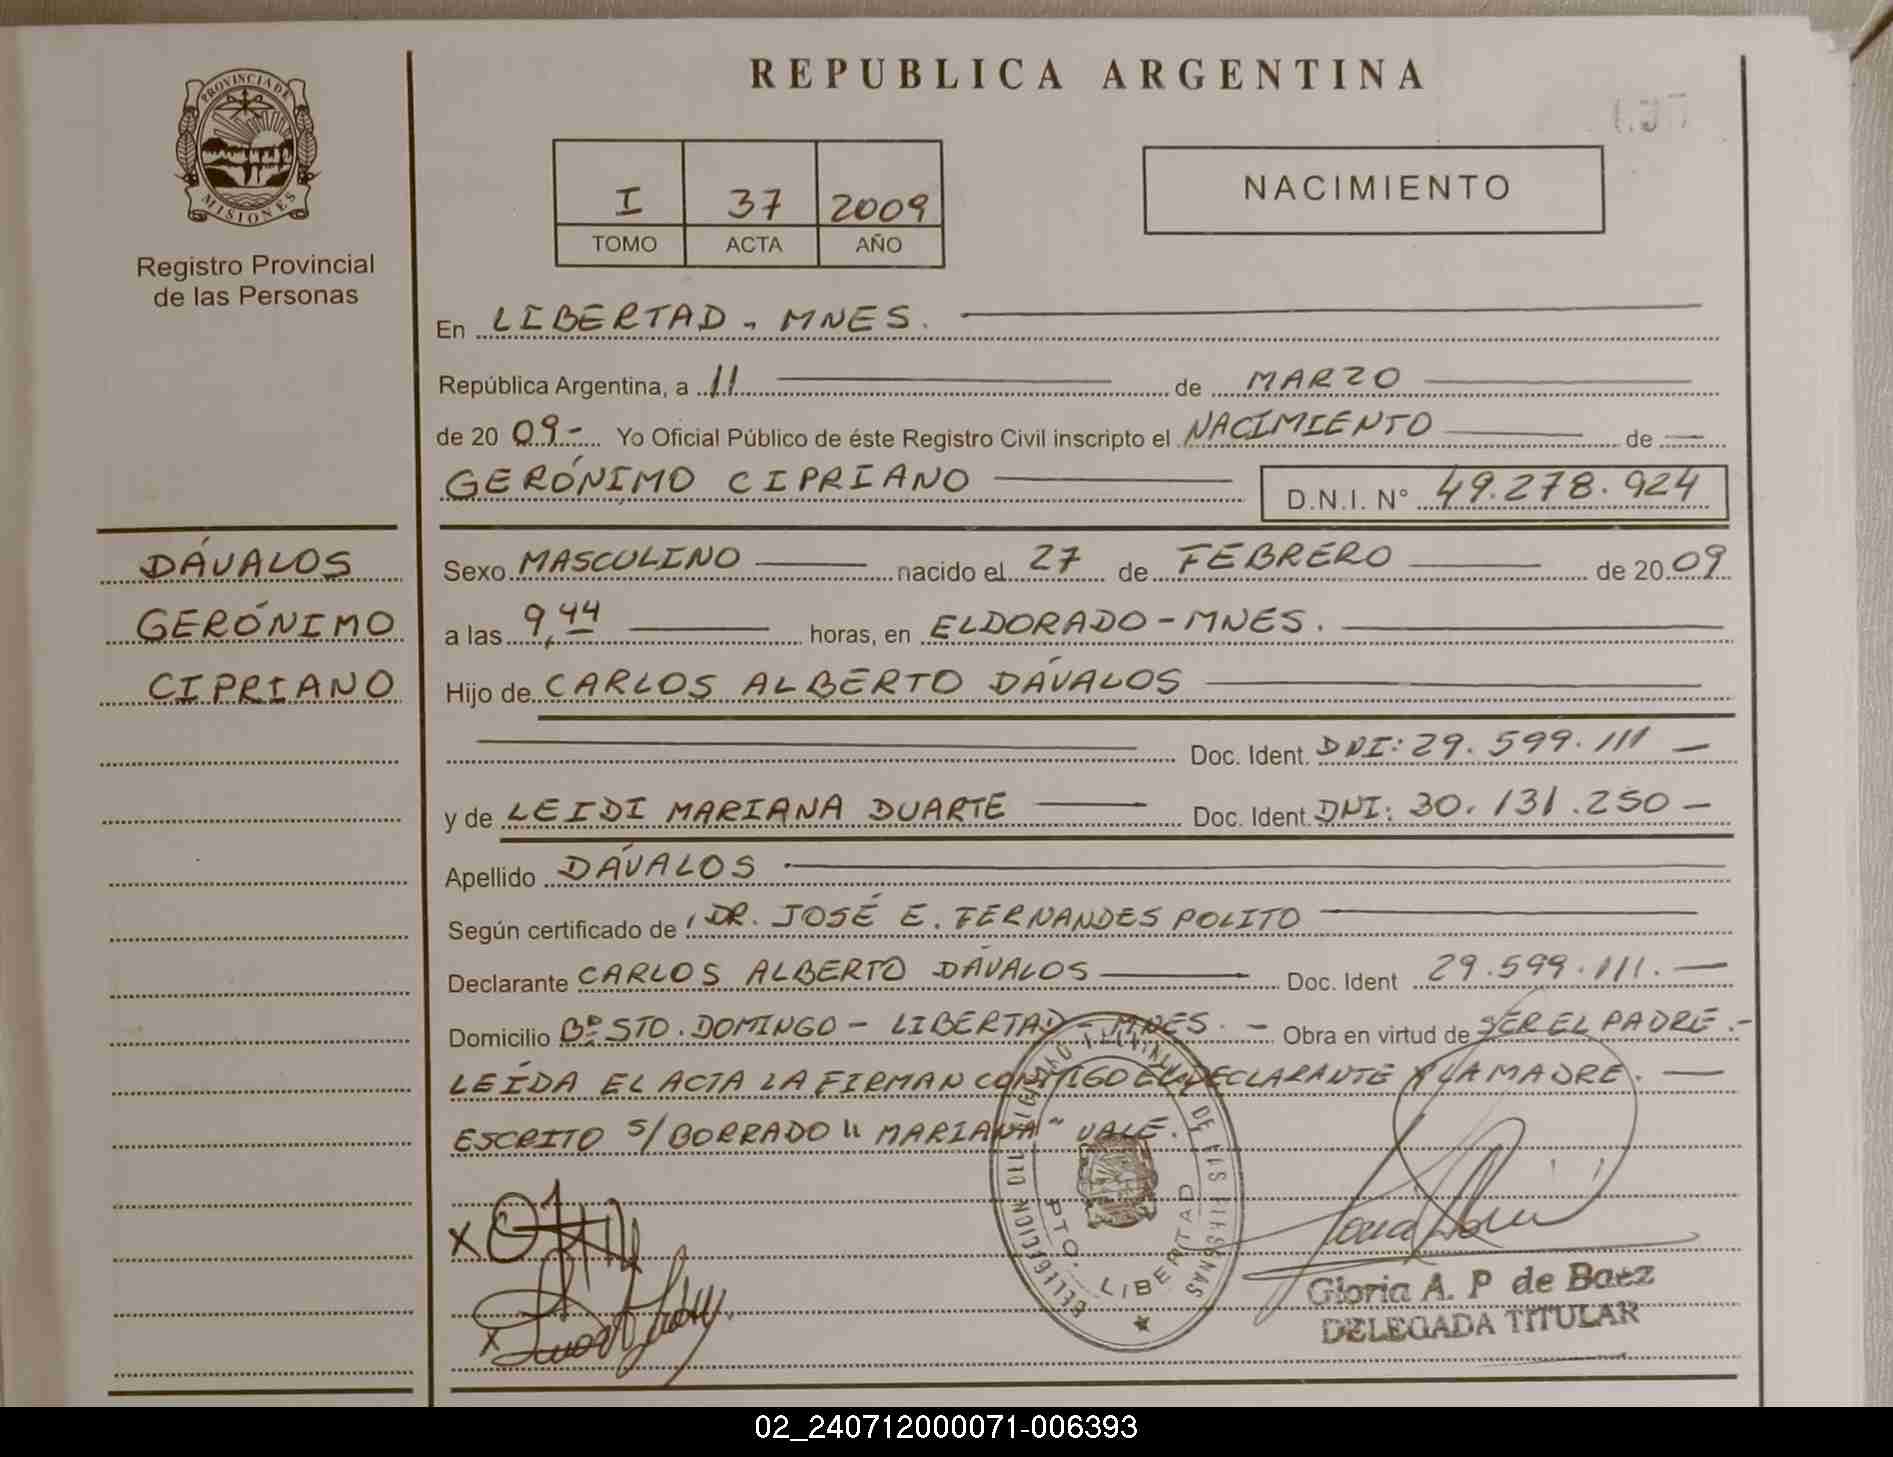 REPUBLICA ARGENTINA
PROVINCIA DE
MISIONES
Registro Provincial
de las Personas
I 37 2009
TOMO ACTA AÑO
NACIMIENTO
En LIBERTAD - MNES.
República Argentina, a 11 de MARZO
de 20 09- Yo Oficial Público de éste Registro Civil inscripto el NACIMIENTO de
GERÓNIMO CIPRIANO D.N.I. N° 49.278.924
DÁVALOS
GERÓNIMO
CIPRIANO
Sexo MASCULINO nacido el 27 de FEBRERO de 20 09
a las 9,44 horas, en ELDORADO - MNES.
Hijo de CARLOS ALBERTO DÁVALOS
Doc. Ident. DNI: 29.599.111 —
y de LEIDI MARIANA DUARTE Doc. Ident. DNI: 30.131.250 —
Apellido DÁVALOS
Según certificado de DR. JOSÉ E. FERNANDES POLITO
Declarante CARLOS ALBERTO DÁVALOS Doc. Ident 29.599.111. —
Domicilio Bº STO. DOMINGO - LIBERTAD - MNES. - Obra en virtud de SER EL PADRE.-
LEÍDA EL ACTA LA FIRMAN CONMIGO EL DECLARANTE Y LA MADRE. —
ESCRITO S/BORRADO "MARIANA" VALE.
PTO. LIBERTAD
Gloria A. P de Baez
DELEGADA TITULAR
02_240712000071-006393